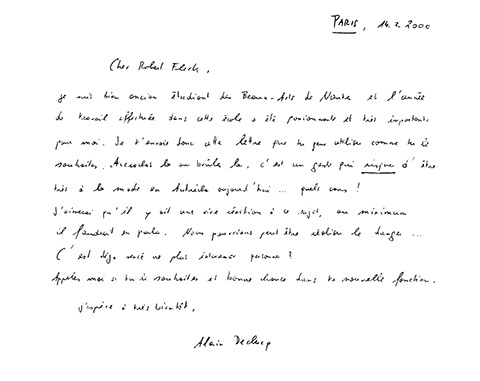 PARIS, 14.2.2000
Cher Robert Fleck,
je suis bien ancien étudiant des Beaux-Arts de Nantes et l'année
de travail effectuée dans cette école a été passionnante et très importante
pour moi. Je t'envoie donc cette lettre que tu peux utiliser comme tu le
souhaites. Accroches la ou brûle la, c'est un geste qui risque d'être
très à la mode en Autriche aujourd'hui ... quels cons !
J'aimerai qu'il y ait une vive réaction à ce sujet, au minimum
il faudrait en parler. Nous pourrions peut être réaliser le danger ...
C'est déjà sensé ne plus intéresser personne ?
Appelez moi si tu le souhaites et bonne chance dans ta nouvelle fonction.
j'espère à très bientôt,
Alain Declercq